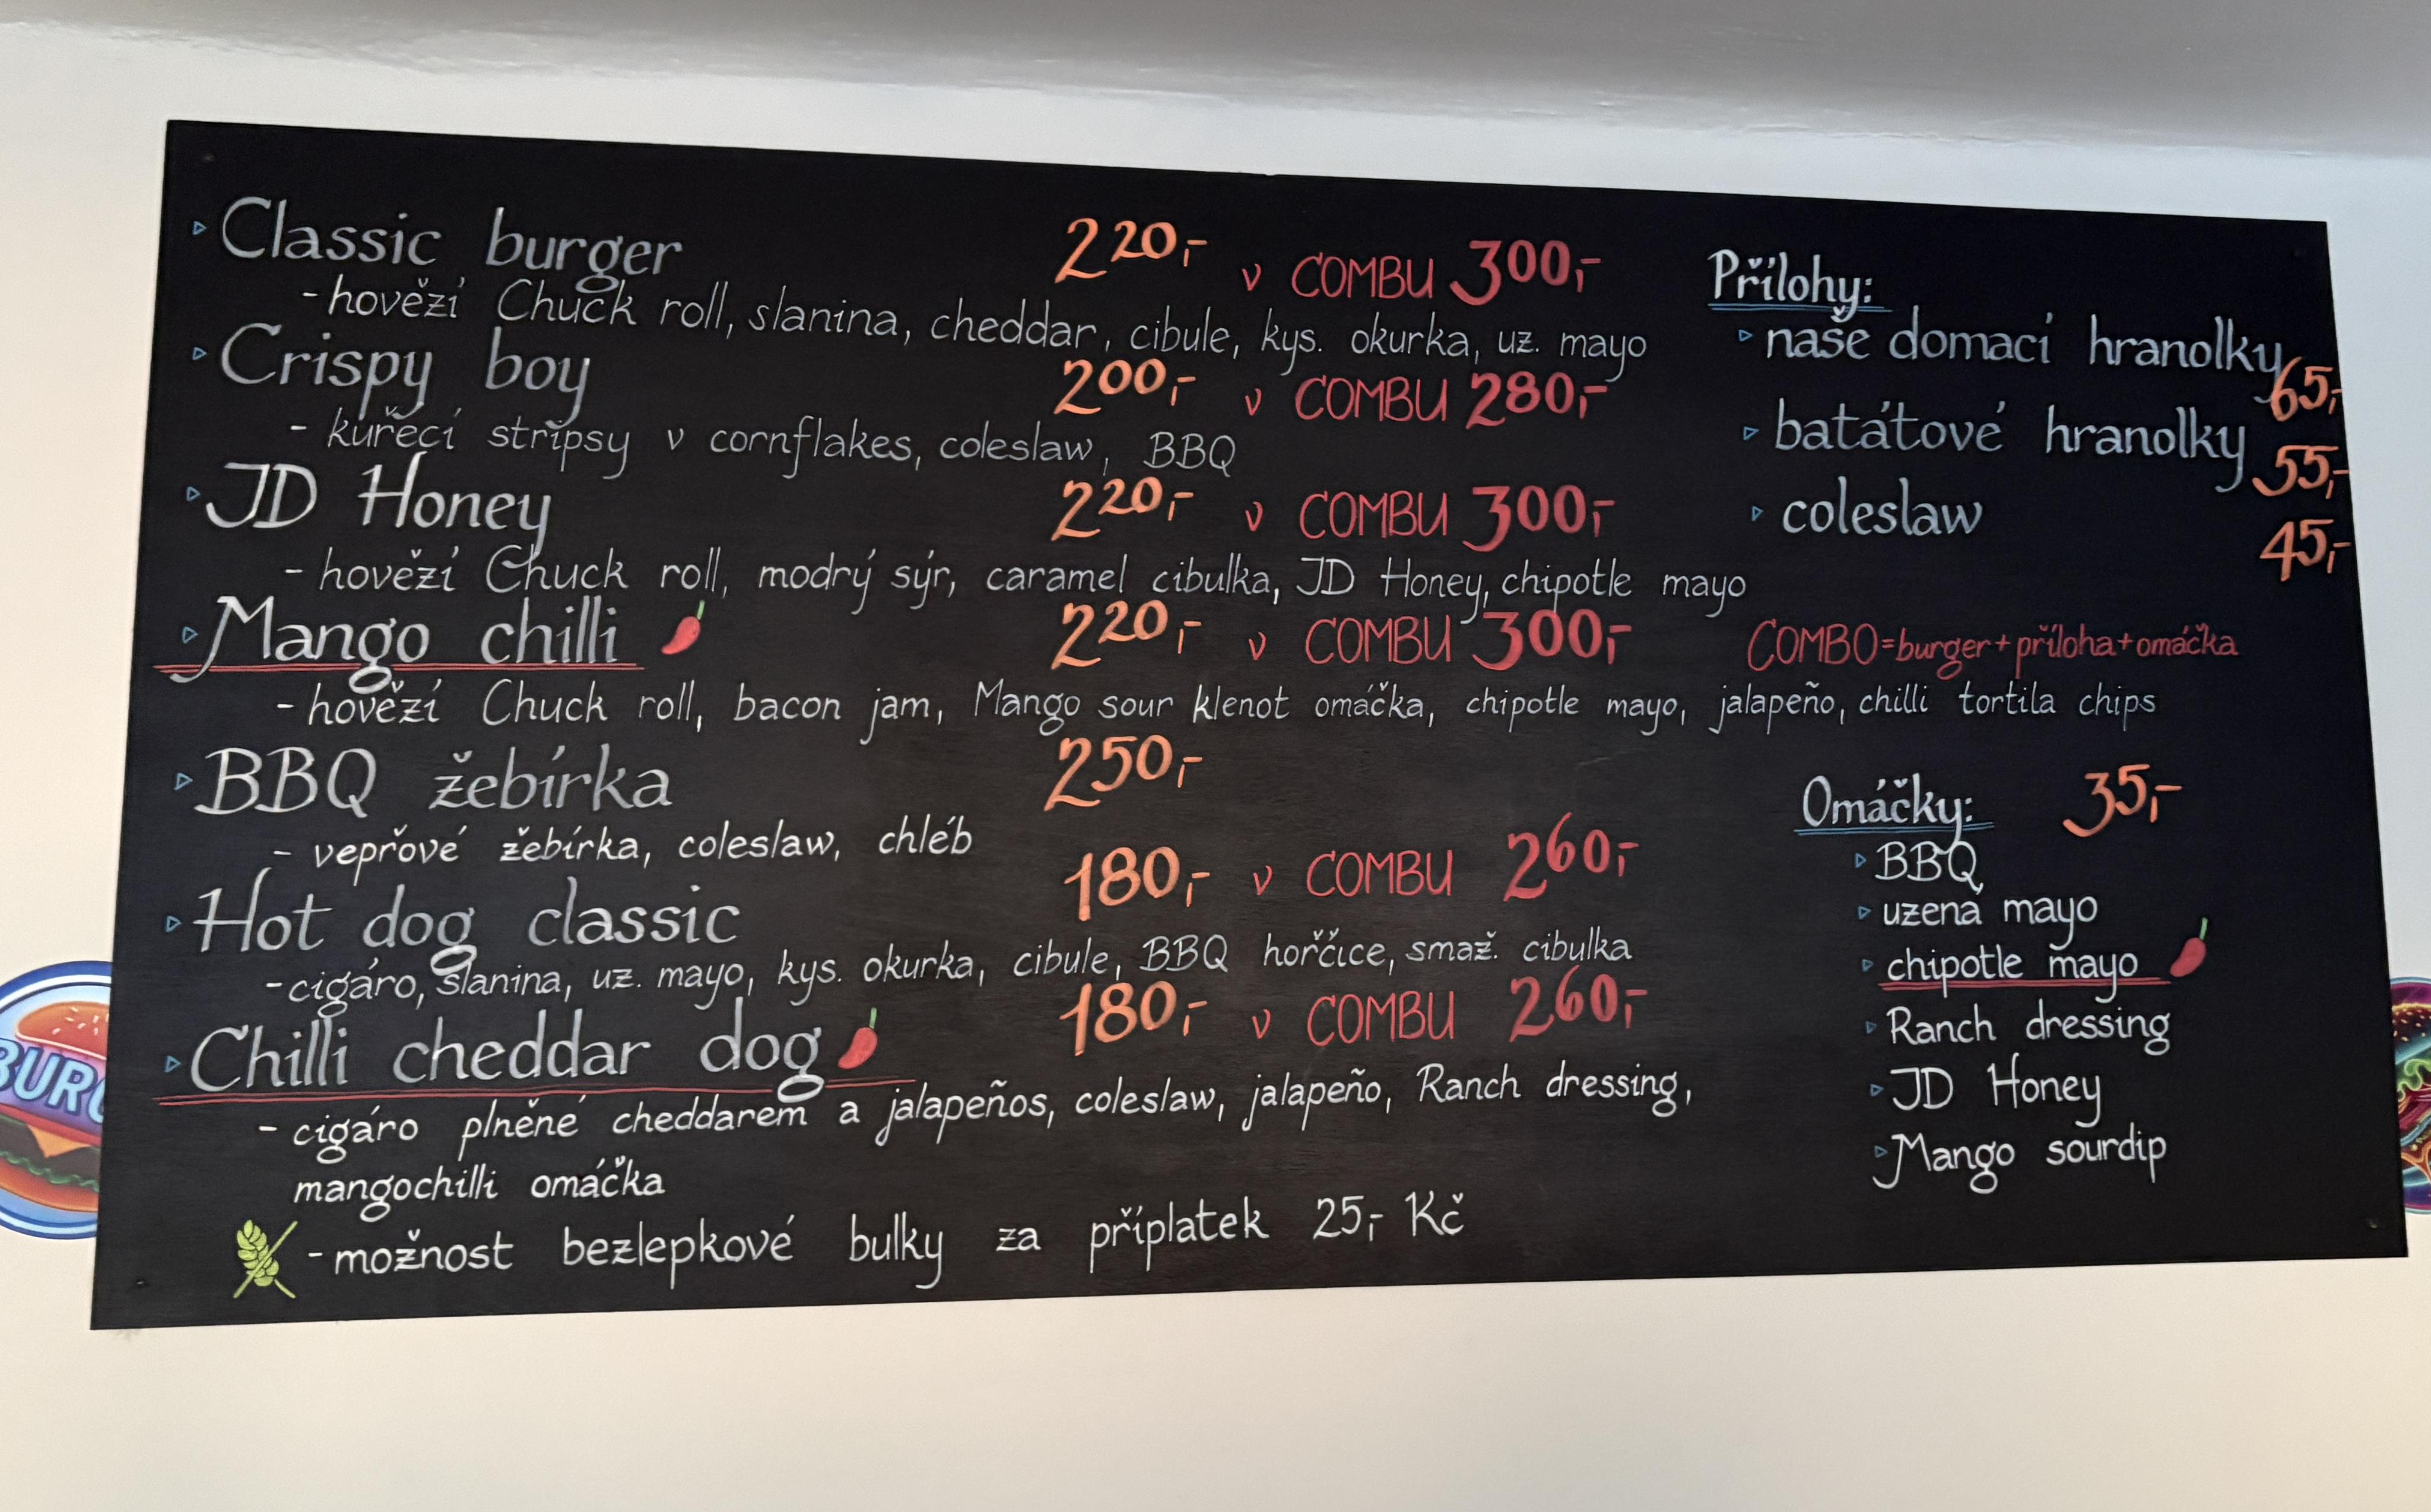 Classic burger 220,- v COMBU 300,-
- hovězí Chuck roll, slanina, cheddar, cibule, kys. okurka, uz. mayo
Crispy boy 200,- v COMBU 280,-
- kuřecí stripsy v cornflakes, coleslaw, BBQ
JD Honey 220,- v COMBU 300,-
- hovězí Chuck roll, modrý sýr, caramel cibulka, JD Honey, chipotle mayo
Mango chilli 220,- v COMBU 300,-
- hovězí Chuck roll, bacon jam, Mango sour klenot omáčka, chipotle mayo, jalapeño, chilli tortila chips
BBQ žebírka 250,-
- vepřové žebírka, coleslaw, chléb
Hot dog classic 180,- v COMBU 260,-
- cigáro, slanina, uz. mayo, kys. okurka, cibule, BBQ hořčice, smaž. cibulka
Chilli cheddar dog 180,- v COMBU 260,-
- cigáro plněné cheddarem a jalapeños, coleslaw, jalapeño, Ranch dressing,
mangochilli omáčka
- možnost bezlepkové bulky za příplatek 25,- Kč
Přílohy:
naše domací hranolky 65,-
batátové hranolky 55,-
coleslaw 45,-
COMBO=burger+příloha+omáčka
Omáčky: 35,-
BBQ
uzená mayo
chipotle mayo
Ranch dressing
JD Honey
Mango sourdip